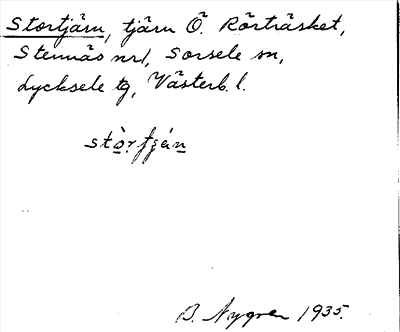 Stortjärn, tjärn Ö. Rörträsket,
Stennäs nr1, Sorsele sn,
Lycksele tg, Västerb. l.
stòrtjän
B. Nygren 1935.